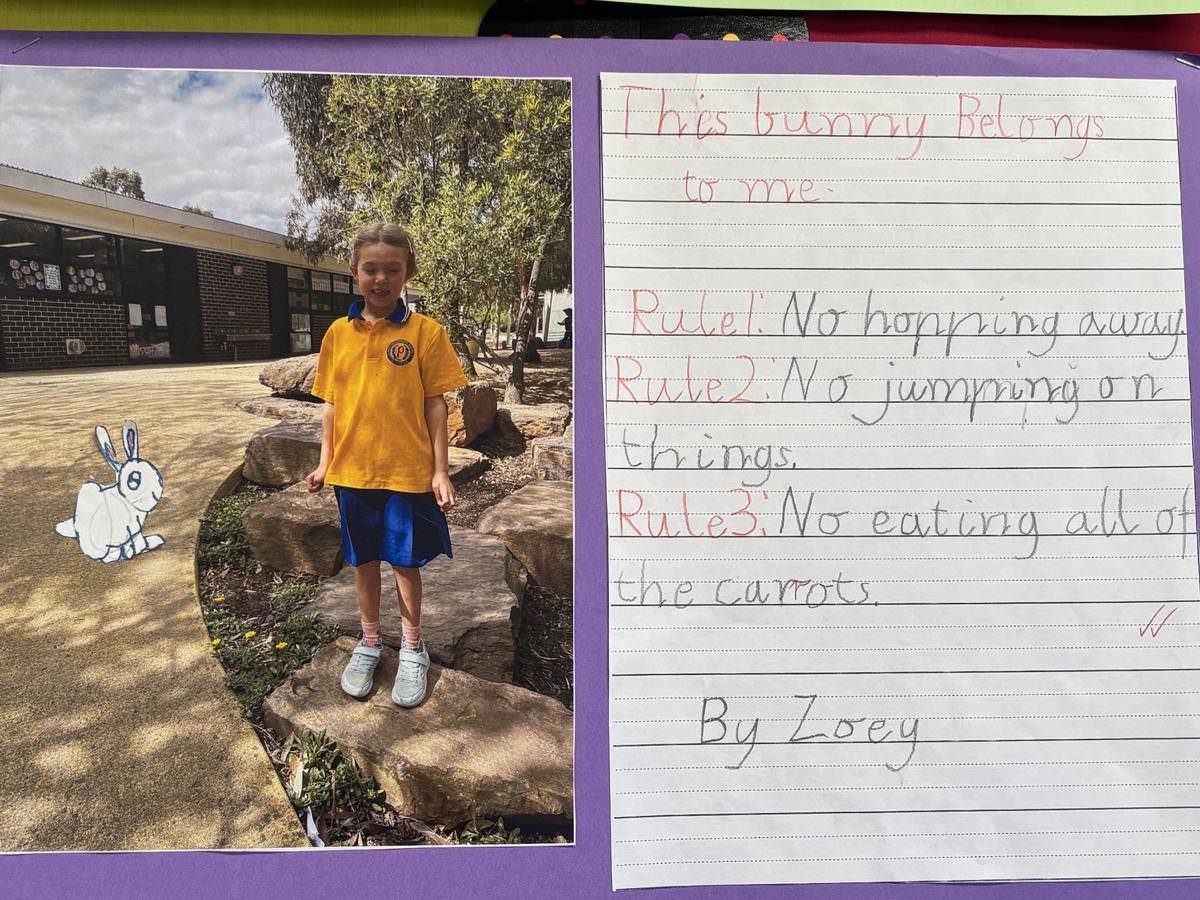 This bunny Belongs
to me.
Rule1: No hopping away.
Rule2: No jumping on
things.
Rule3: No eating all of
the carrots.
By Zoey
P